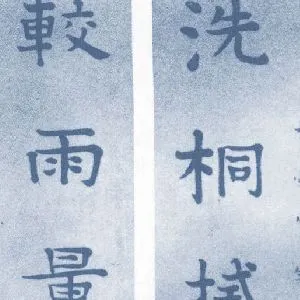 洗桐拭
較雨量